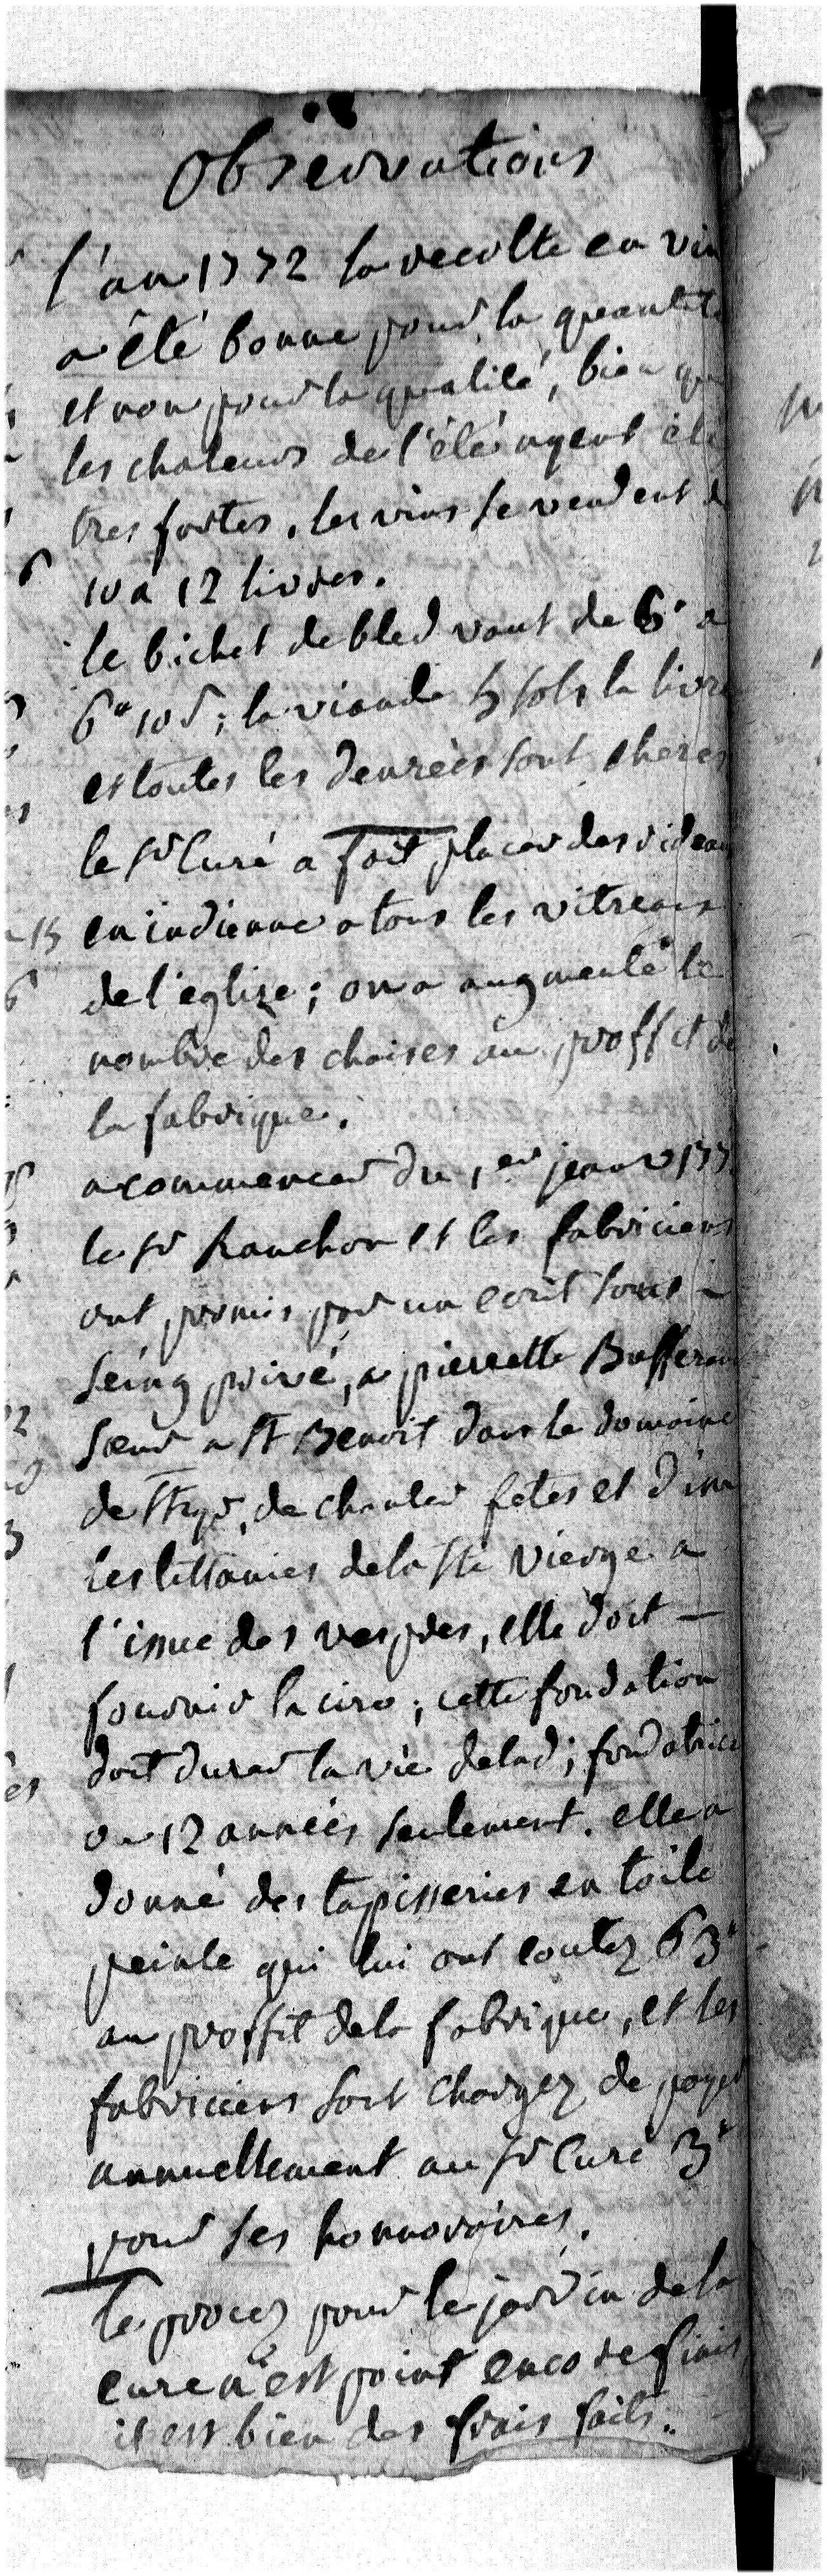 Observations
l'an 1772 la recolte en vin
a êté bonne pour la quantité
et non pour la qualité, bien que
les chaleurs de l'été ayent été
tres fortes. les vins se vendent de
10 a 12 livres.
le bichet de bled vaut de 6# a
6# 10 s; la viande 5 sols la livre
et toutes les denrées sont cheres
le sr Curé a fait placer des rideaux
en indienne a tous les vitreaux
de l'eglize; on a augmenté le
nombre des chaises au proffit de
la fabrique.
a commencer du 1er janvr 177
le sr Ranchon et les fabriciens
ont promis par un ecrit sous
seing privé, a pierrette Bufferan
sœur a St Benoit dans le domaine
de de chanter fetes et dim
les littanies de la Ste vierge a
l'issue des vespres, elle doit
fournir la cire; cette fondation
doit durer la vie de lad; fondatrice
ou 12 années seulement. elle a
donné des tapisseries en toile
peinte qui lui ont coutez 63#
au proffit de la fabrique, et les
fabriciens sont chargez de payer
annuellement au sr Curé 3#
pour ses honnoraires.
le procez pour le jardin de la
cure n'est point encore finis
il est bien des frais faits.